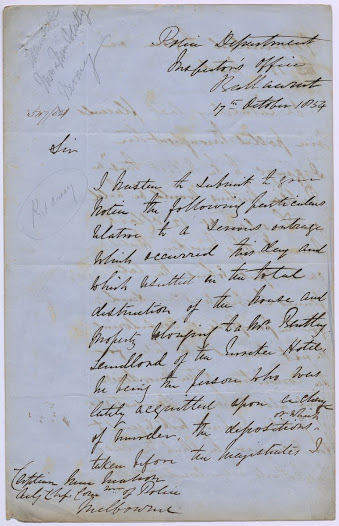 Police Department
Inspectors Office
Ballaarat
17th October 1854
Sir
I hasten to submit to your
notice the following particulars
relative to a serious outrage
which occurred this day and
which resulted in the total
destruction of the house and
property belonging to Mr Bentley
Landlord of the Eureka Hotel
he being the person who was
lately acquitted upon a charge
of murder, the depositions on which
taken before the magistrates I
Captain Mac Mahon
Actg Chief Comr of Police
Melbourne